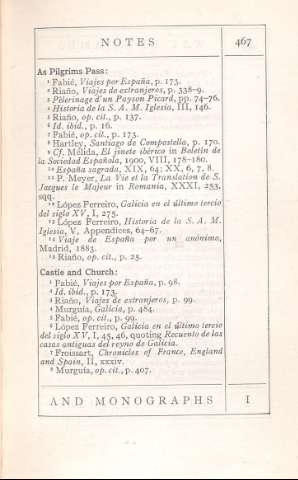 NOTES 467
As Pilgrims Pass:
¹ Fabié, Viajes por España, p. 173.
² Riaño, Viajes de extranjeros, p. 338-9.
³ Pèlerinage d'un Paysan Picard, pp. 74-76.
⁴ Historia de la S. A. M. Iglesia, III, 146.
⁵ Riaño, op. cit., p. 137.
⁶ Id. ibid., p. 16.
⁷ Fabié, op. cit., p. 173.
⁸ Hartley, Santiago de Compostella, p. 170.
⁹ Cf. Mélida, El jinete ibérico in Boletin de
la Sociedad Española, 1900, VIII, 178-180.
¹⁰ España sagrada, XIX, 64; XX, 6, 7, 8.
¹¹ P. Meyer, La Vie et la Translation de S.
Jacques le Majeur in Romania, XXXI, 253,
sqq.
¹² López Ferreiro, Galicia en el último tercio
del siglo XV, I, 275.
¹³ López Ferreiro, Historia de la S. A. M.
Iglesia, V, Appendices, 64-67.
¹⁴ Viaje de España por un anónimo,
Madrid, 1883.
¹⁵ Riaño, op. cit., p. 25.
Castle and Church:
¹ Fabié, Viajes por España, p. 98.
² Id. ibid., p. 173.
³ Riaño, Viajes de extranjeros, p. 99.
⁴ Murguía, Galicia, p. 484.
⁵ Fabié, op. cit., p. 99.
⁶ López Ferreiro, Galicia en el último tercio
del siglo XV, I, 45, 46, quoting Recuento de las
casas antiguas del reyno de Galicia.
⁷ Froissart, Chronicles of France, England
and Spain, II, xxxiv.
⁸ Murguía, op. cit., p. 407.
AND MONOGRAPHS I